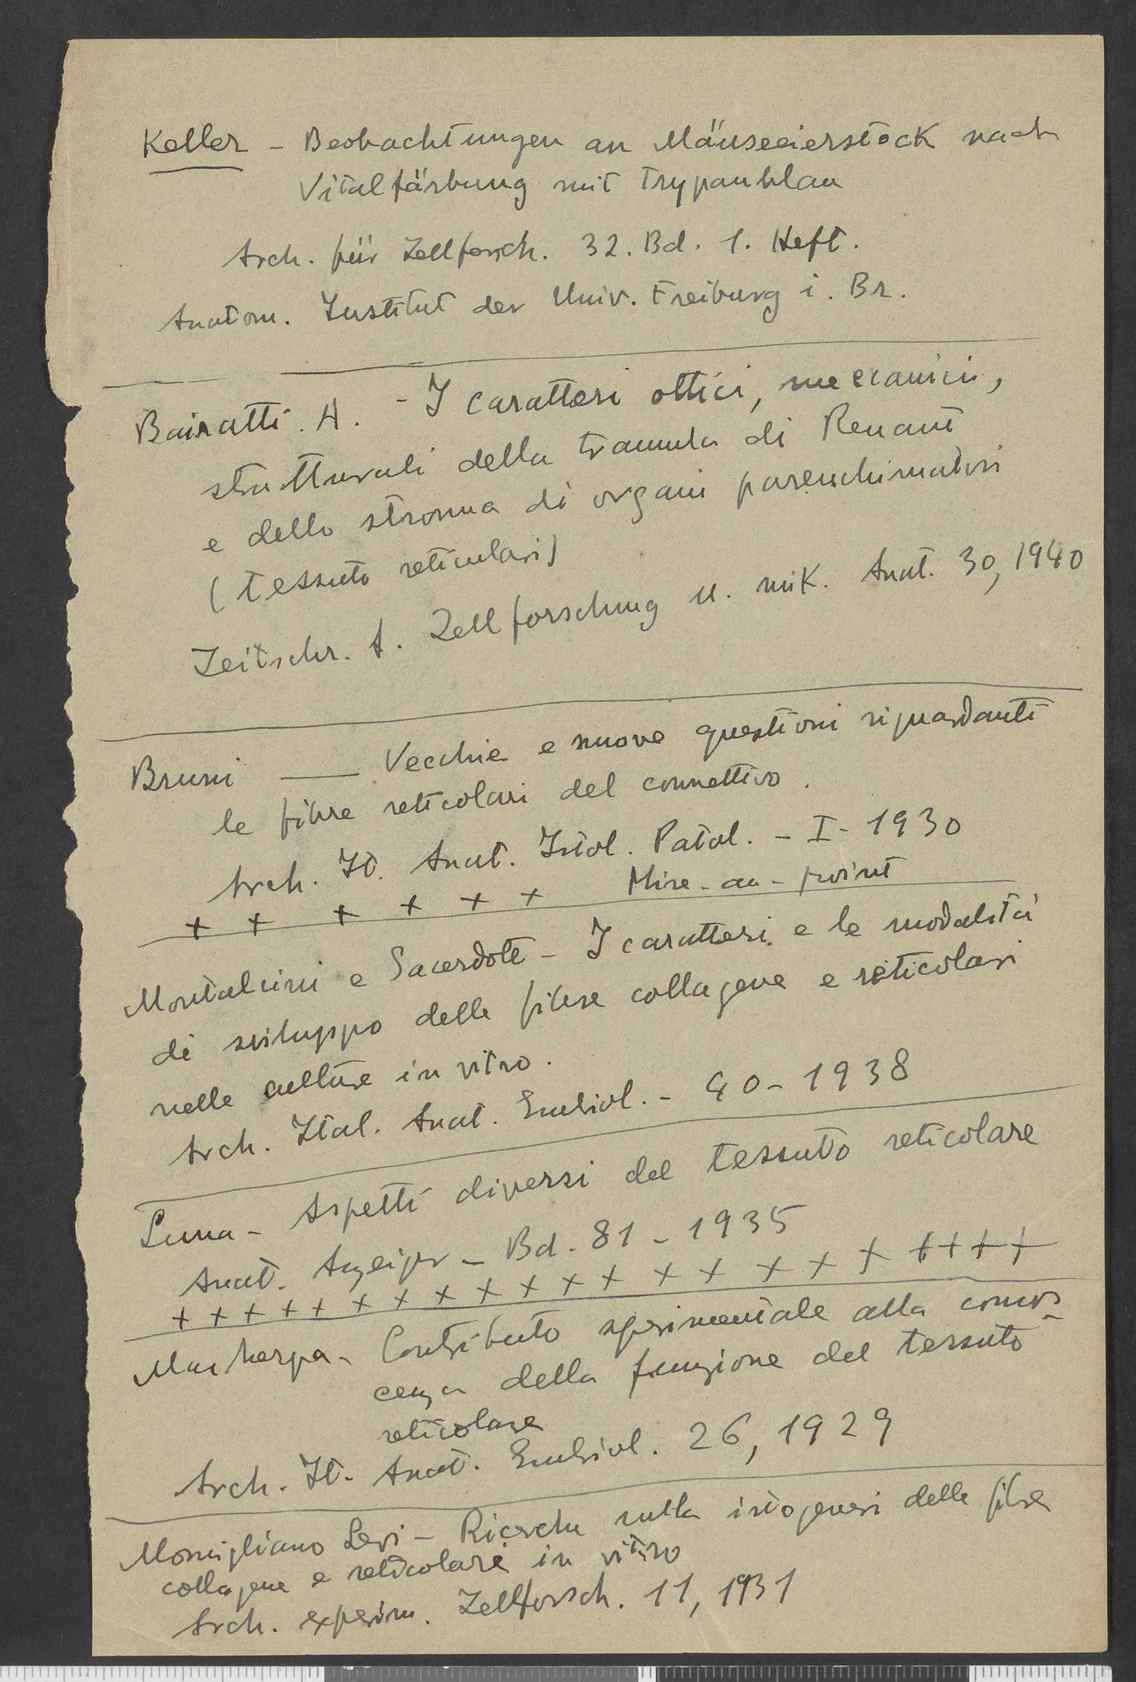 Keller - Beobachtungen an Mäuseeierstock nach
Vitalfärbung mit Trypanblau
Arch. für Zellforsch. 32. Bd. 1. Heft.
Anatom. Institut der Univ. Freiburg i. Br.
Bairatti. A. - I caratteri ottici, meccanici,
strutturali della tramula di Renaut
e dello stroma di organi parenchimatosi
(tessuto reticulari)
Zeitschr. f. Zellforschung u. mik. Anat. 30, 1940
Bruni — Vecchie e nuove questioni riguardanti
le fibre reticolari del connettivo.
Arch. It. Anat. Istol. Patol. - I - 1930
+ + + + + + Mise-au-point
Montalcini e Sacerdote - I caratteri e le modalità
di sviluppo delle fibre collagene e reticolari
nelle culture in vitro.
Arch. Ital. Anat. Embriol. - 40 - 1938
Luna - Aspetti diversi del tessuto reticolare
Anat. Anzeiger - Bd. 81 - 1935
+ + + + + + + + + + + + + + + + + + + +
Contributo sperimentale alla conos-
cenza della funzione del tessuto
reticolare
Arch. It. Anat. Embriol. 26, 1929
Momigliano Levi - Ricerche sulla istogenesi delle fibre
collagene e reticolari in vitro
Arch. experim. Zellforsch. 11, 1931